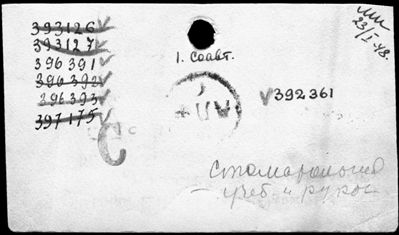 393126
393127
396391
396392
396393
397175
1. Соавт.
392361
23/I-48.
Стоматология
учеб. и руков